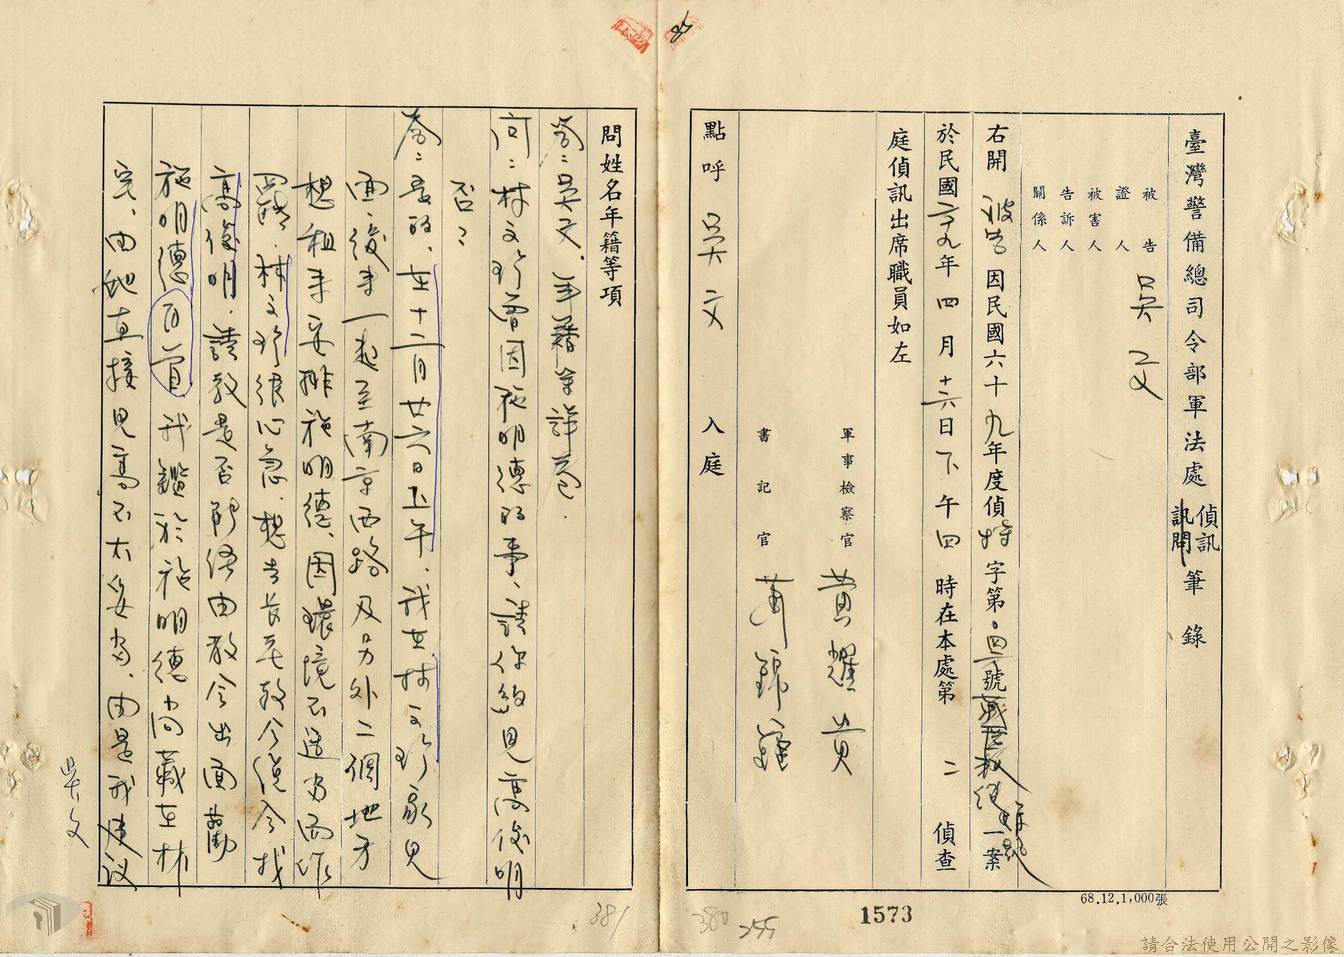 85
臺灣警備總司令部軍法處偵訊訊問筆錄
被告
證人
被害人
告訴人
關係人
吳文
右開被告因民國六十九年度偵特字第 號 一案
於民國六十九年四月十六日下午四時在本處第二偵查
庭偵訊出席職員如左
軍事檢察官 黃耀
書記官 蕭錦
點呼 吳文 入庭
68.12.1,000張
1573
380
255
問姓名年籍等項
答:吳文,年籍等詳卷.
問:林文珍曾因施明德的事,請你約見高俊明
否:
答:是的,在十二月廿六日上午,我在林文珍家見
面,後來一起至南京西路及另外二個地方
想租來安排施明德,因環境不適當而作
罷.林文珍很心急,想去長老教會總會找
高俊明,請教是否能由教會出面勸
施明德自首,我鑑於施明德尚藏在林
宅,由她直接見高不太妥當,由是我建議
吳文
381
請合法使用公開之影像